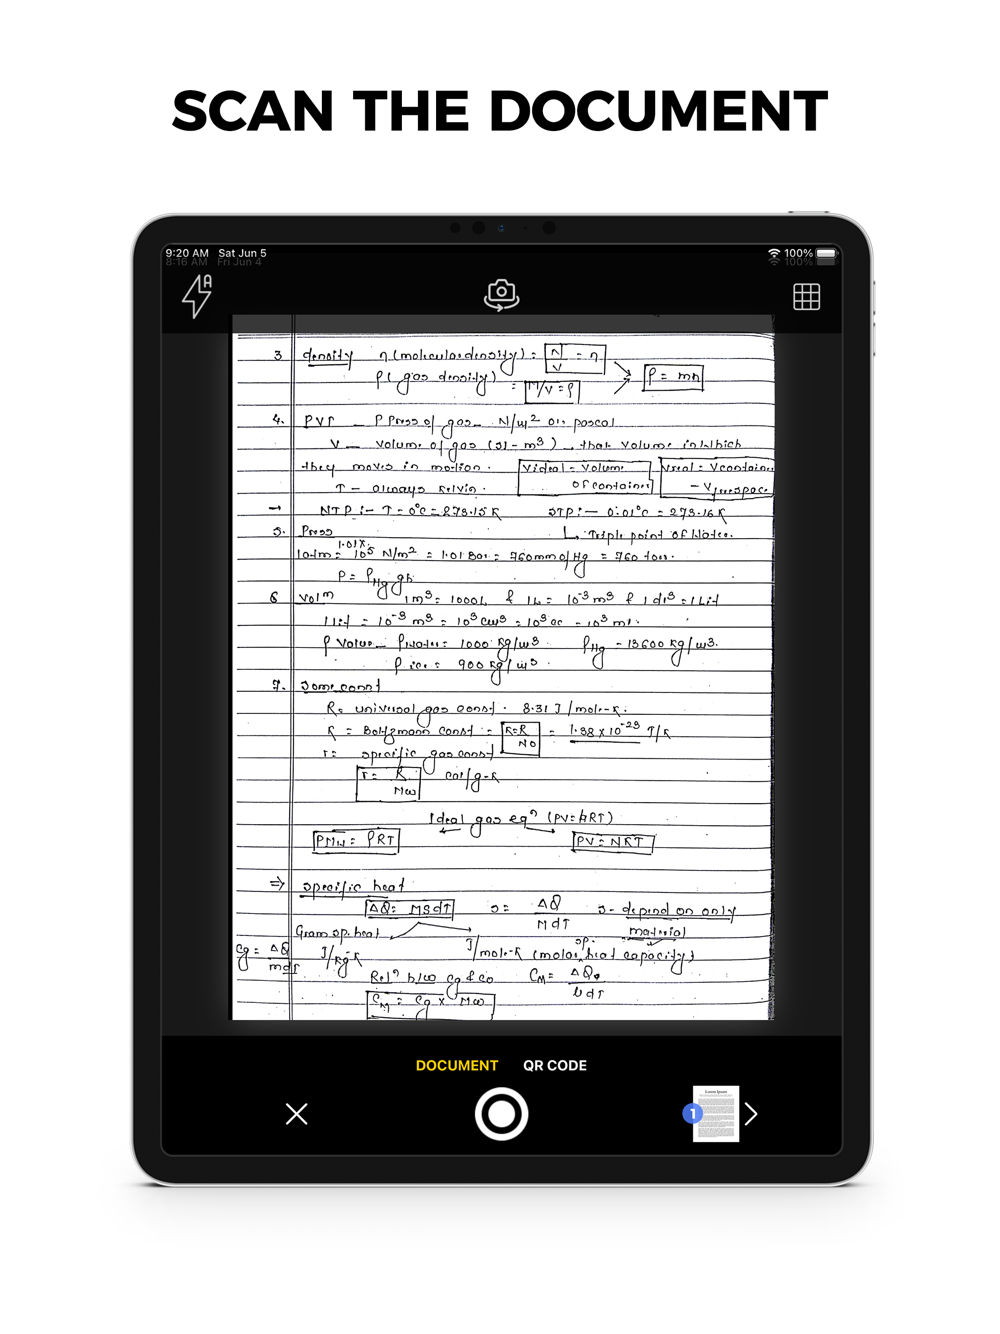 SCAN THE DOCUMENT
9:20 AM Sat Jun 5 100%
8:16 AM Fri Jun 4 100%
A
3 density η (molecular density) = N/V = η
ρ (gas density) = M/V = ρ ρ = mη
4. PVT – P Press of gas – N/m² or pascal
V – volume of gas (SI – m³) – that volume in which
they moves in motion. Videal = Volume of container Vreal = Vcontainer – Vfreespace
T – always kelvin.
→ NTP :- T – 0°C = 273.15 K STP :- 0.01°C = 273.16 K
5. Press ↳ Triple point of Water.
1 atm = 1.01× 10⁵ N/m² = 1.01 Bar = 760 mm of Hg = 760 torr.
P = ρHg gh
6 Volm 1m³ = 1000L & 1L = 10⁻³ m³ & 1 dt³ = 1 Lit
1 Lit = 10⁻³ m³ = 10³ cm³ = 10³ cc – 10³ ml.
ρ Value – ρwater = 1000 kg/m³ ρHg – 13600 kg/m³.
ρice = 900 kg/m³.
7. Some const
R = universal gas const. 8.31 J/mole-K.
K = Boltzmann const = K = R/No = 1.38 × 10⁻²³ J/K
r = specific gas const
r = R/Mw cal/g-K
Ideal gas eqⁿ (PV = nRT)
PMw = ρRT PV = NRT
⇒ specific heat
ΔQ = MSdT s = ΔQ/MdT s – depend on only
Gram sp. heat material
Cg = ΔQ/mdT J/kg K J/mole-K (molar sp. heat capacity)
Relⁿ b/w Cg & Co CM = ΔQ/μdT
CM = Cg × Mw
DOCUMENT QR CODE
1 Lorem Ipsum